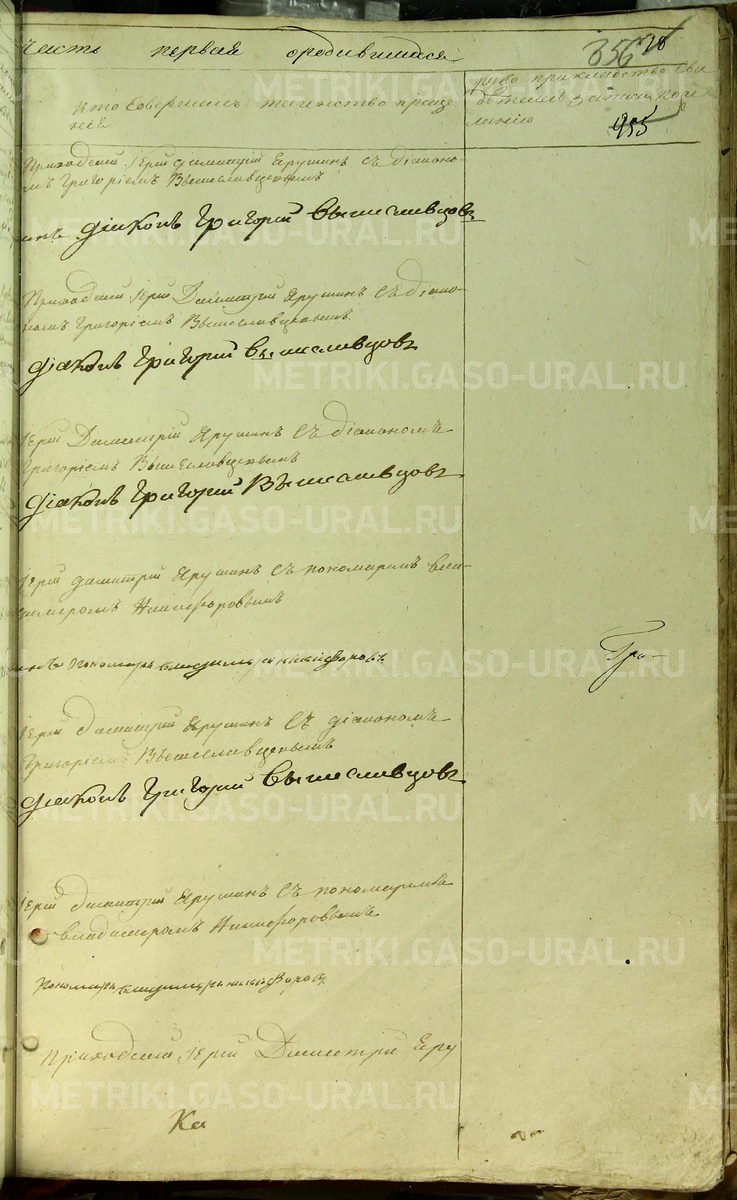 часть первая ородившихся
356 78
кто совершилъ таинство креще
нiя
рукоприкладство сви
дѣтелей записи по же
ланiю
455
Приходскiй Iерей Димитрiй Ярушинъ съ дiаконо
мъ Григорiемъ Вышеславцовымъ
дiаконъ Григорiй Вышеславцовъ
Приходскiй Iерей Димитрiй Ярушинъ съ дiако
номъ Григорiемъ Вышеславцовымъ
дiаконъ Григорiй Вышеславцовъ
Iерей Димитрiй Ярушинъ съ дiакономъ
Григорiемъ Вышеславцовымъ
дiаконъ Григорiй Вышеславцовъ
Iерей Димитрiй Ярушинъ съ пономаремъ вла
димеромъ Никифоровымъ
пономарь владимиръ никифоровъ
Гра-
Iерей Димитрiй Ярушинъ съ дiакономъ
Григорiемъ Вышеславцовымъ
дiаконъ Григорiй Вышеславцовъ
Iерей Димитрiй Ярушинъ съ пономаремъ
владимеромъ Никифоровымъ
пономарь владимиръ никифоровъ
Приходскiй Iерей Димитрiй Яру
Ка
METRIKI.GASO-URAL.RU